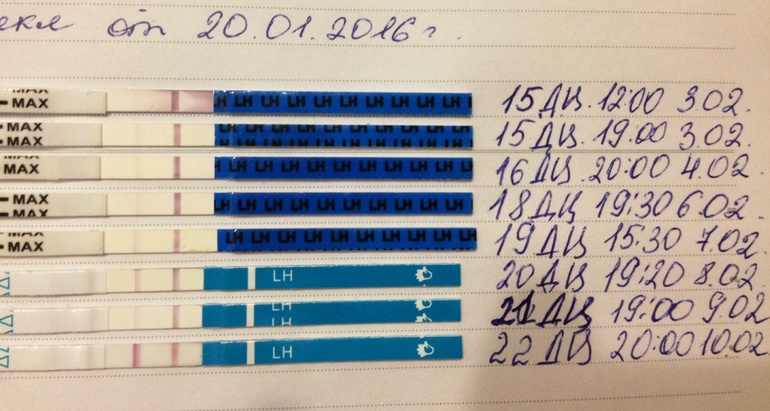 от 20.01.2016г.
MAX LH LH LH LH LH LH LH 15 ДЦ. 12:00 3.02.
MAX LH LH LH LH LH LH LH 15 ДЦ. 19:00 3.02.
MAX LH LH LH LH LH LH LH 16 ДЦ. 20:00 4.02.
MAX LH LH LH LH LH LH LH 18 ДЦ 19:30 6.02.
MAX LH LH LH LH LH LH LH 19 ДЦ 15:30 7.02.
LH 20 ДЦ 19:20 8.02.
LH 21 ДЦ 19:00 9.02
LH 22 ДЦ 20:00 10.02.